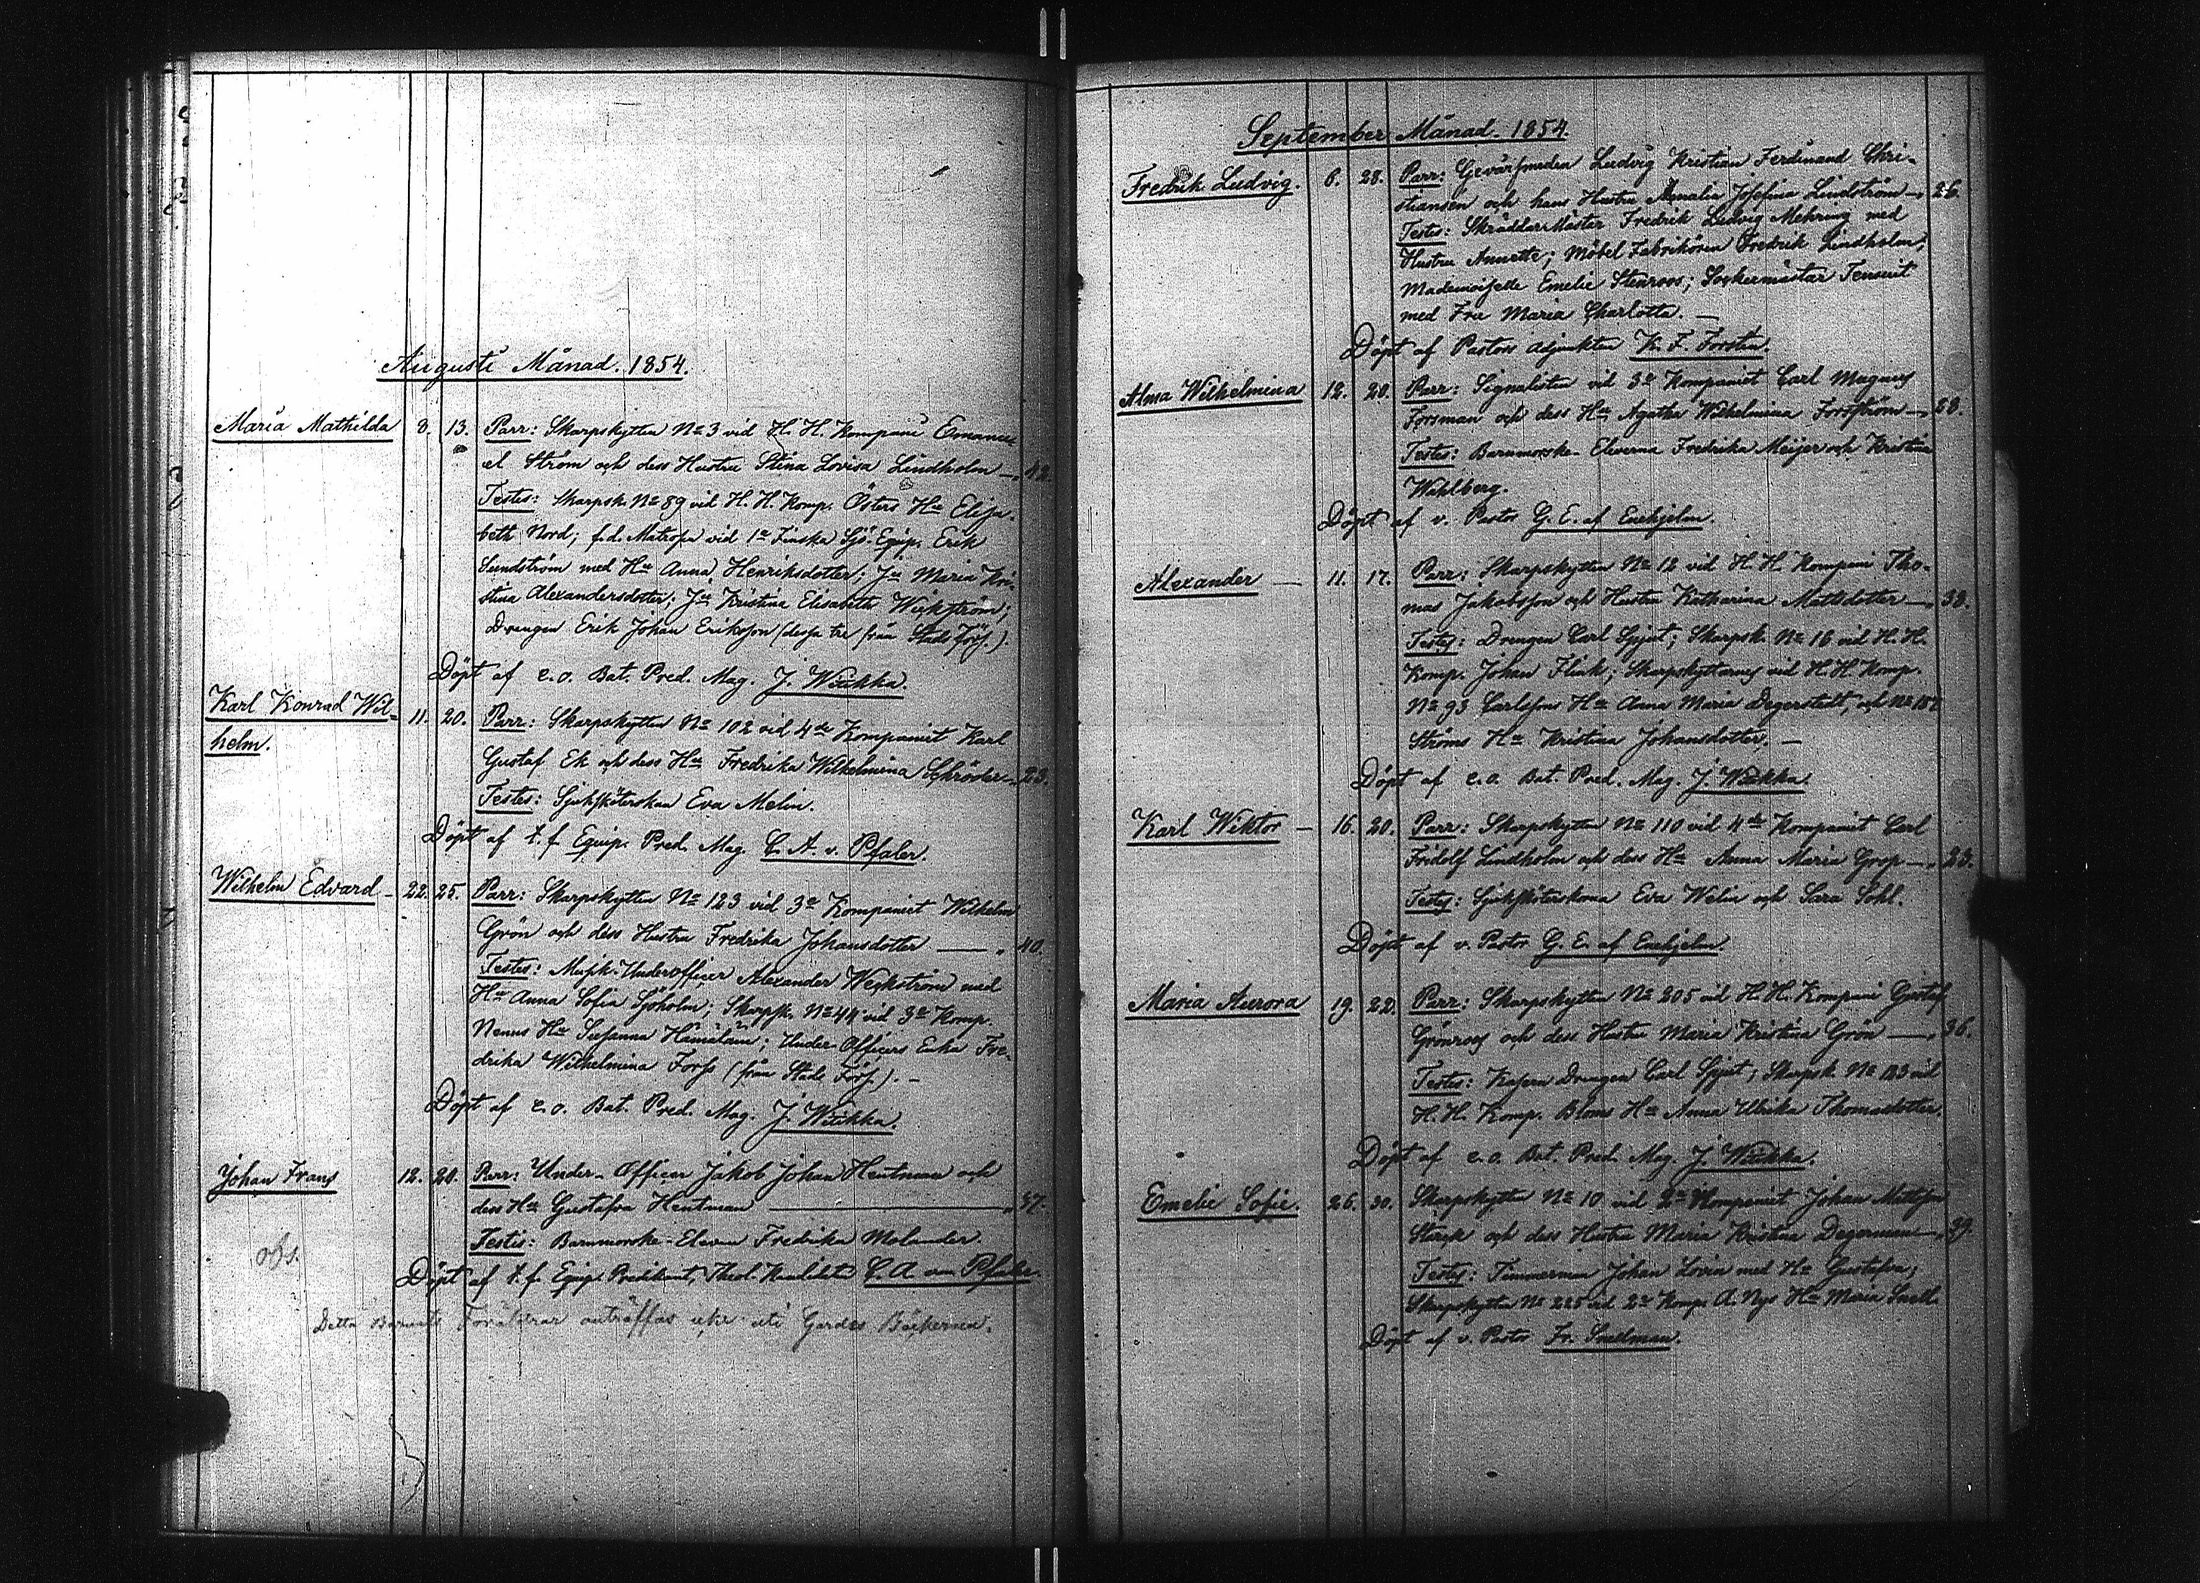 Augusti Månad. 1854.
Maria Mathilda 8. 13. Parr: Skarpskytten No 3 vid H. H. Kompani Emanu-
el Ström och dess Hustru Stina Lovisa Lindholm — 42.
Testes: Skarpsk. No 89 vid H. H. Komp. Östers Hu Elisa-
beth Nord; f.d. Matrosen vid 1a Finska Sjö-Equip. Erik
Sundström med Hu Anna Henriksdotter; Ju Maria Kri-
stina Alexandersdotter; Ju Kristina Elisabeth Wickström;
Drengen Erik Johan Eriksson (dessa tre från Stads Förs.).
Döpt af e.o. Bat. Pred. Mag. J. Wiukka.
Karl Konrad Wil-
helm. 11. 20. Parr: Skarpskytten No 102 vid 4de Kompaniet Karl
Gustaf Ek och dess Hu Fredrika Wilhelmina Schröder — 23.
Testes: Sjuksköterskan Eva Melin.
Döpt af t.f. Equip. Pred. Mag. C. A. v. Pfaler.
Wilhelm Edvard — 22. 25. Parr: Skarpskytten No 123 vid 3e Kompaniet Wilhelm
Grön och dess Hustru Fredrika Johansdotter — " 40.
Testes: Musik-Underofficer Alexander Weckström med
Hu Anna Sofia Sjöholm; Skarpsk. No 44 vid 3e Komp.
Nenus Hu Susanna Hämäläin; Under-Officers Enka Fre-
drika Wilhelmina Forss (från Stads Förs.). —
Döpt af e.o. Bat. Pred. Mag. J. Wiukka.
Johan Frans 12. 20. Parr: Under-Officer Jakob Johan Hentman och
dess Hu Gustafva Hentman — " 37.
Testis: Barnmorske-Eleven Fredrika Melander.
Döpt af t.f. Equip. Predikant, Theol. Kandidaten C. A. von Pfaler.
obs.
Detta Barnets Föräldrar anträffas icke uti Gardes Böckerna.
September Månad. 1854.
Fredrik Ludvig. 6. 28. Parr: Gevärssmeden Ludvig Kristian Ferdinand Chri-
stiansen och hans Hustru Amalia Josefina Lindström — 26.
Testes: Skräddar Mäster Fredrik Ludvig Mehring med
Hustru Annette; Möbel Fabrikören Fredrik Lindholm;
Mademoiselle Emelie Stenroos; Sockermästar
med Fru Maria Charlotta. —
Döpt af Pastors adjunkten K. F. Forstén.
Alma Wilhelmina 12. 20. Parr: Signalisten vid 3e Kompaniet Carl Magnus
Forsman och dess Hu Agatha Wilhelmina Forsström — 28.
Testes: Barnmorske-Eleverna Fredrika Meijer och Kristina
Wahlberg.
Döpt af v. Pastor G. E. af Enehjelm.
Alexander — 11. 17. Parr: Skarpskytten No 12 vid H. H. Kompani Tho-
mas Jakobsson och Hustru Katharina Mattsdotter — 33.
Testes: Drengen Carl Spjut; Skarpsk. No 16 vid H. H.
Komp. Johan Flink; Skarpskyttarnes vid H. H. Komp.
No 93 Carlssons Hu Anna Maria Degerstedt, och No 157
Ströms Hu Kristina Johansdotter. —
Döpt af e.o. Bat. Pred. Mag. J. Wiukka
Karl Wiktor — 16. 20. Parr: Skarpskytten No 110 vid 4de Kompaniet Carl
Fridolf Lindholm och dess Hu Anna Maria Grop — " 23.
Testes: Sjuksköterskorna Eva Welin och Sara Sohl.
Döpt af v. Pastor G. E. af Enehjelm.
Maria Aurora 19. 22. Parr: Skarpskytten No 205 vid H. H. Kompani Gustaf
Grönroos och dess Hustru Maria Kristina Grön — " 36.
Testes: Kasern Drengen Carl Spjut; Skarpsk. No 123 vid
H. H. Komp. Bloms Hu Anna Ulrika Thomasdotter.
Döpt af e.o. Bat. Pred. Mag. J. Wiukka.
Emelie Sofie. 26. 30. Skarpskytten No 10 vid 2a Kompaniet Johan Mattsson
Starck och dess Hustru Maria Kristina Degerman — " 39.
Testes: Timmerman Johan Lovin med Hu Gustafva;
Skarpskytten No 225 vid 2a Komp. A. Nys Hu Maria Snell.
Döpt af v. Pastor Fr. Snellman.